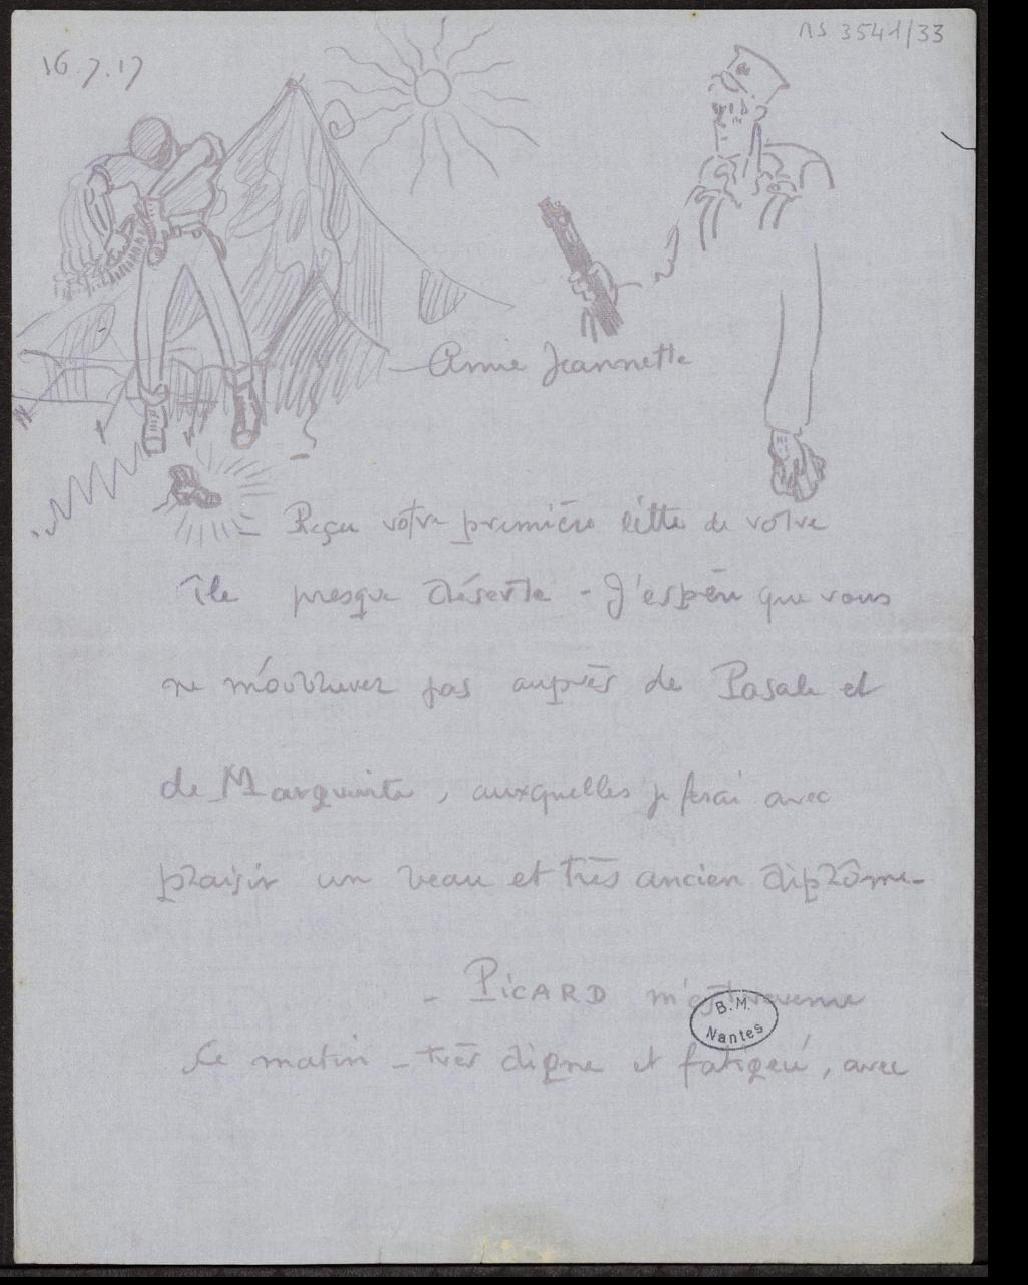 16.7.17
MS 3541/33
— Amie Jeannette
— Reçu votre première lettre de votre
île presque déserte - J'espère que vous
ne m'oublierez pas auprès de et
de Marguerite, auxquelles je ferai avec
plaisir un beau et très ancien diplôme -
- PICARD m'est revenu
ce matin - très digne et fatigué, avec
B.M.
Nantes